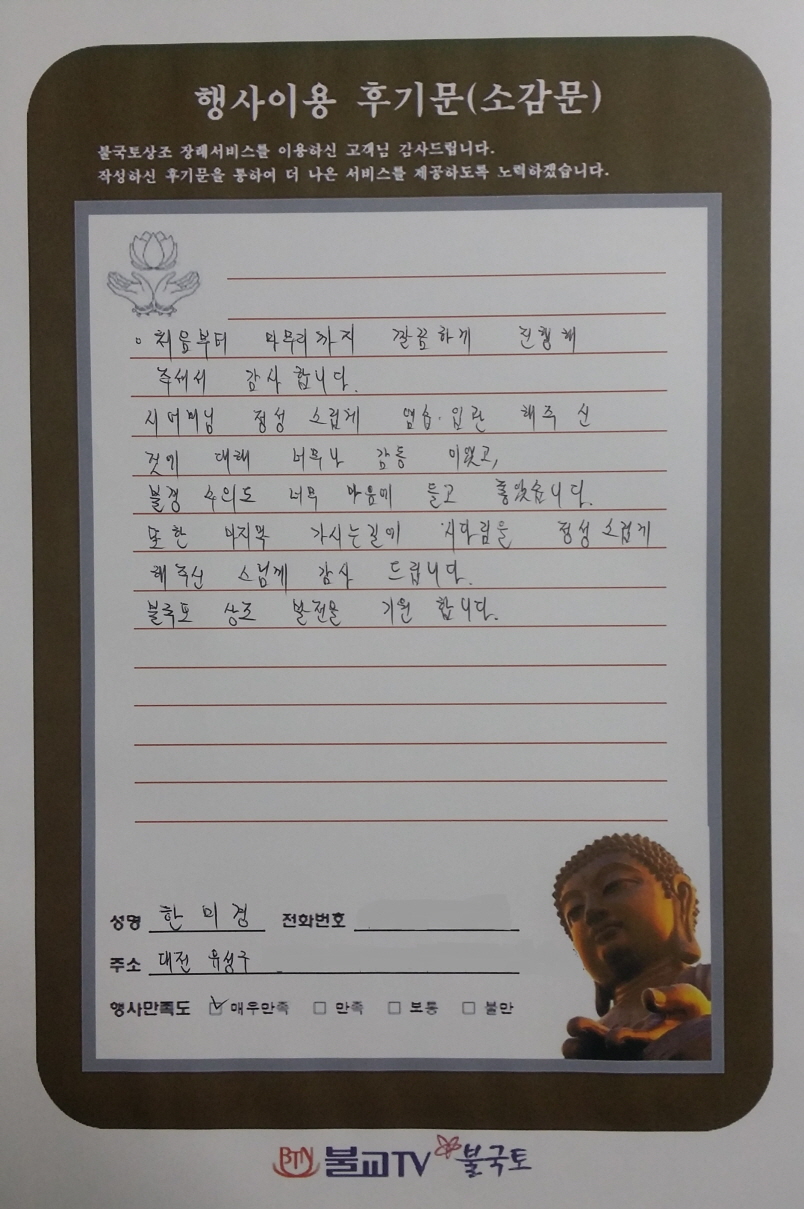 행사이용 후기문(소감문)
불국토상조 장례서비스를 이용하신 고객님 감사드립니다.
작성하신 후기문을 통하여 더 나은 서비스를 제공하도록 노력하겠습니다.
○ 처음부터 마무리까지 깔끔하게 진행해
주셔서 감사 합니다.
시어머님 정성 스럽게 염습·입관 해주 신
것에 대해 너무나 감동 이였고,
불경 수의도 너무 마음에 들고 좋았습니다.
또한 마지막 가시는길에 시다림을 정성 스럽게
해 주신 스님께 감사 드립니다.
불국토 상조 발전을 기원 합니다.
성명 한 미 경 전화번호
주소 대전 유성구
행사만족도 ☑ 매우만족 □ 만족 □ 보통 □ 불만
BTN 불교TV 불국토